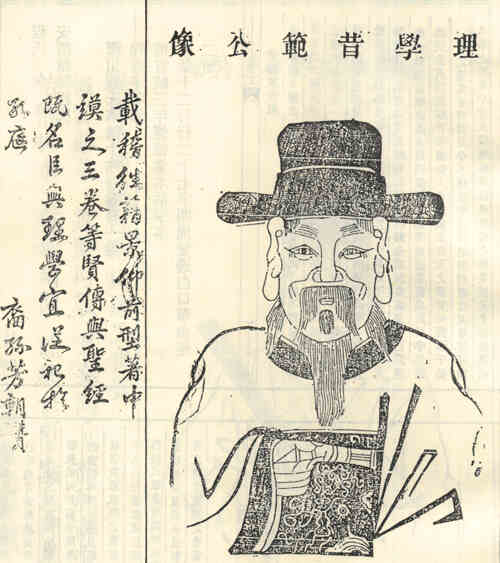 理學昔範公像
載稽籍景仰前型著中
謨之三卷等賢傳與聖經
既名臣與理學宜從祀於
孔庭
裔孫芳朝